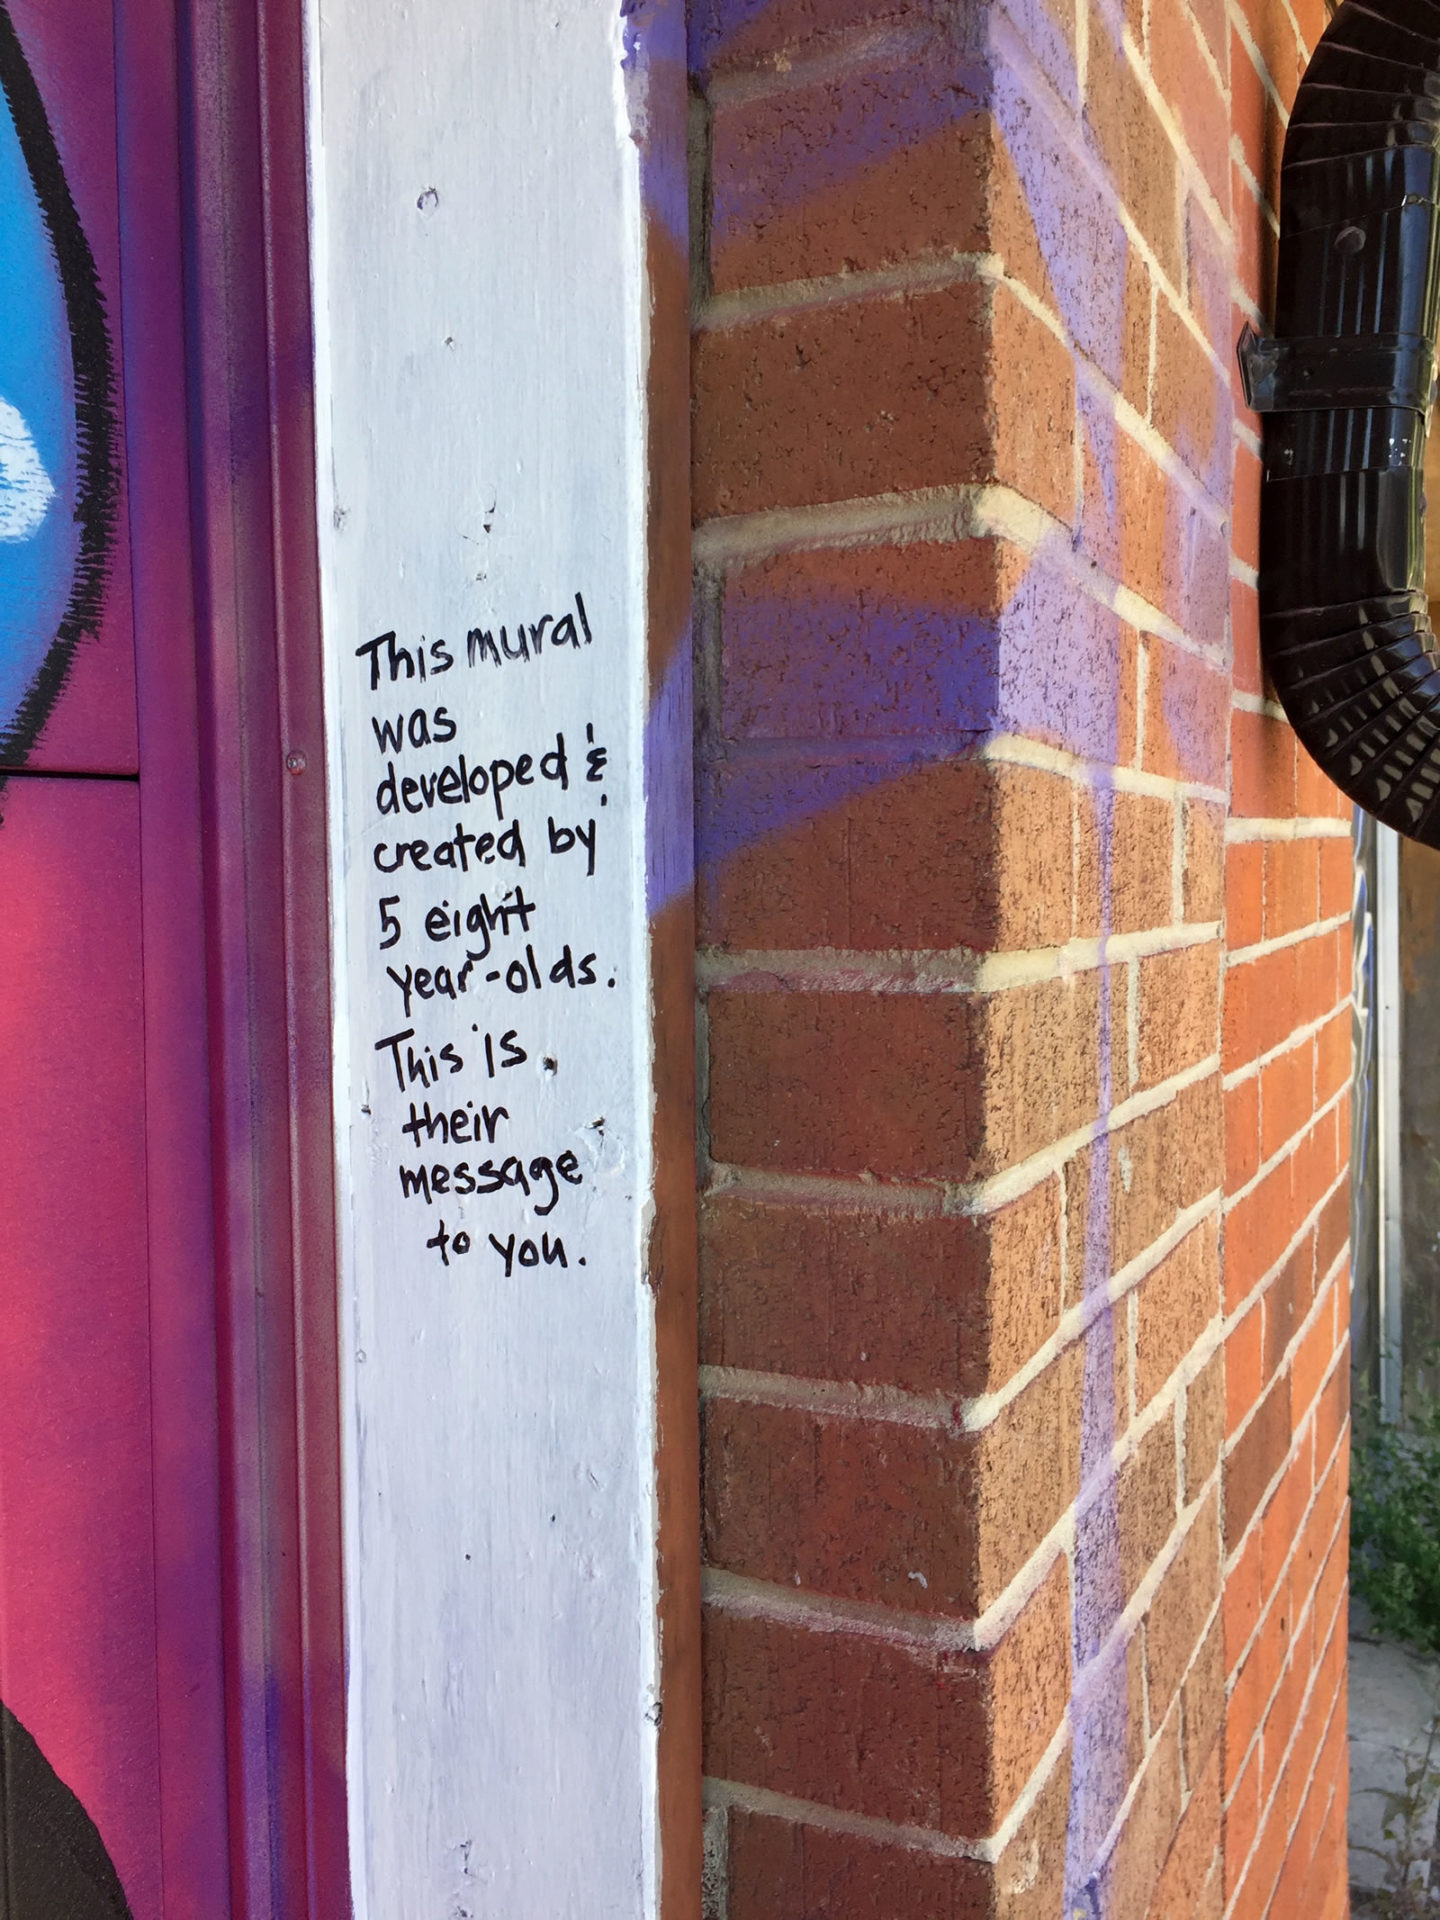 This mural
was
developed &
created by
5 eight
year-olds.
This is
their
message
to you.